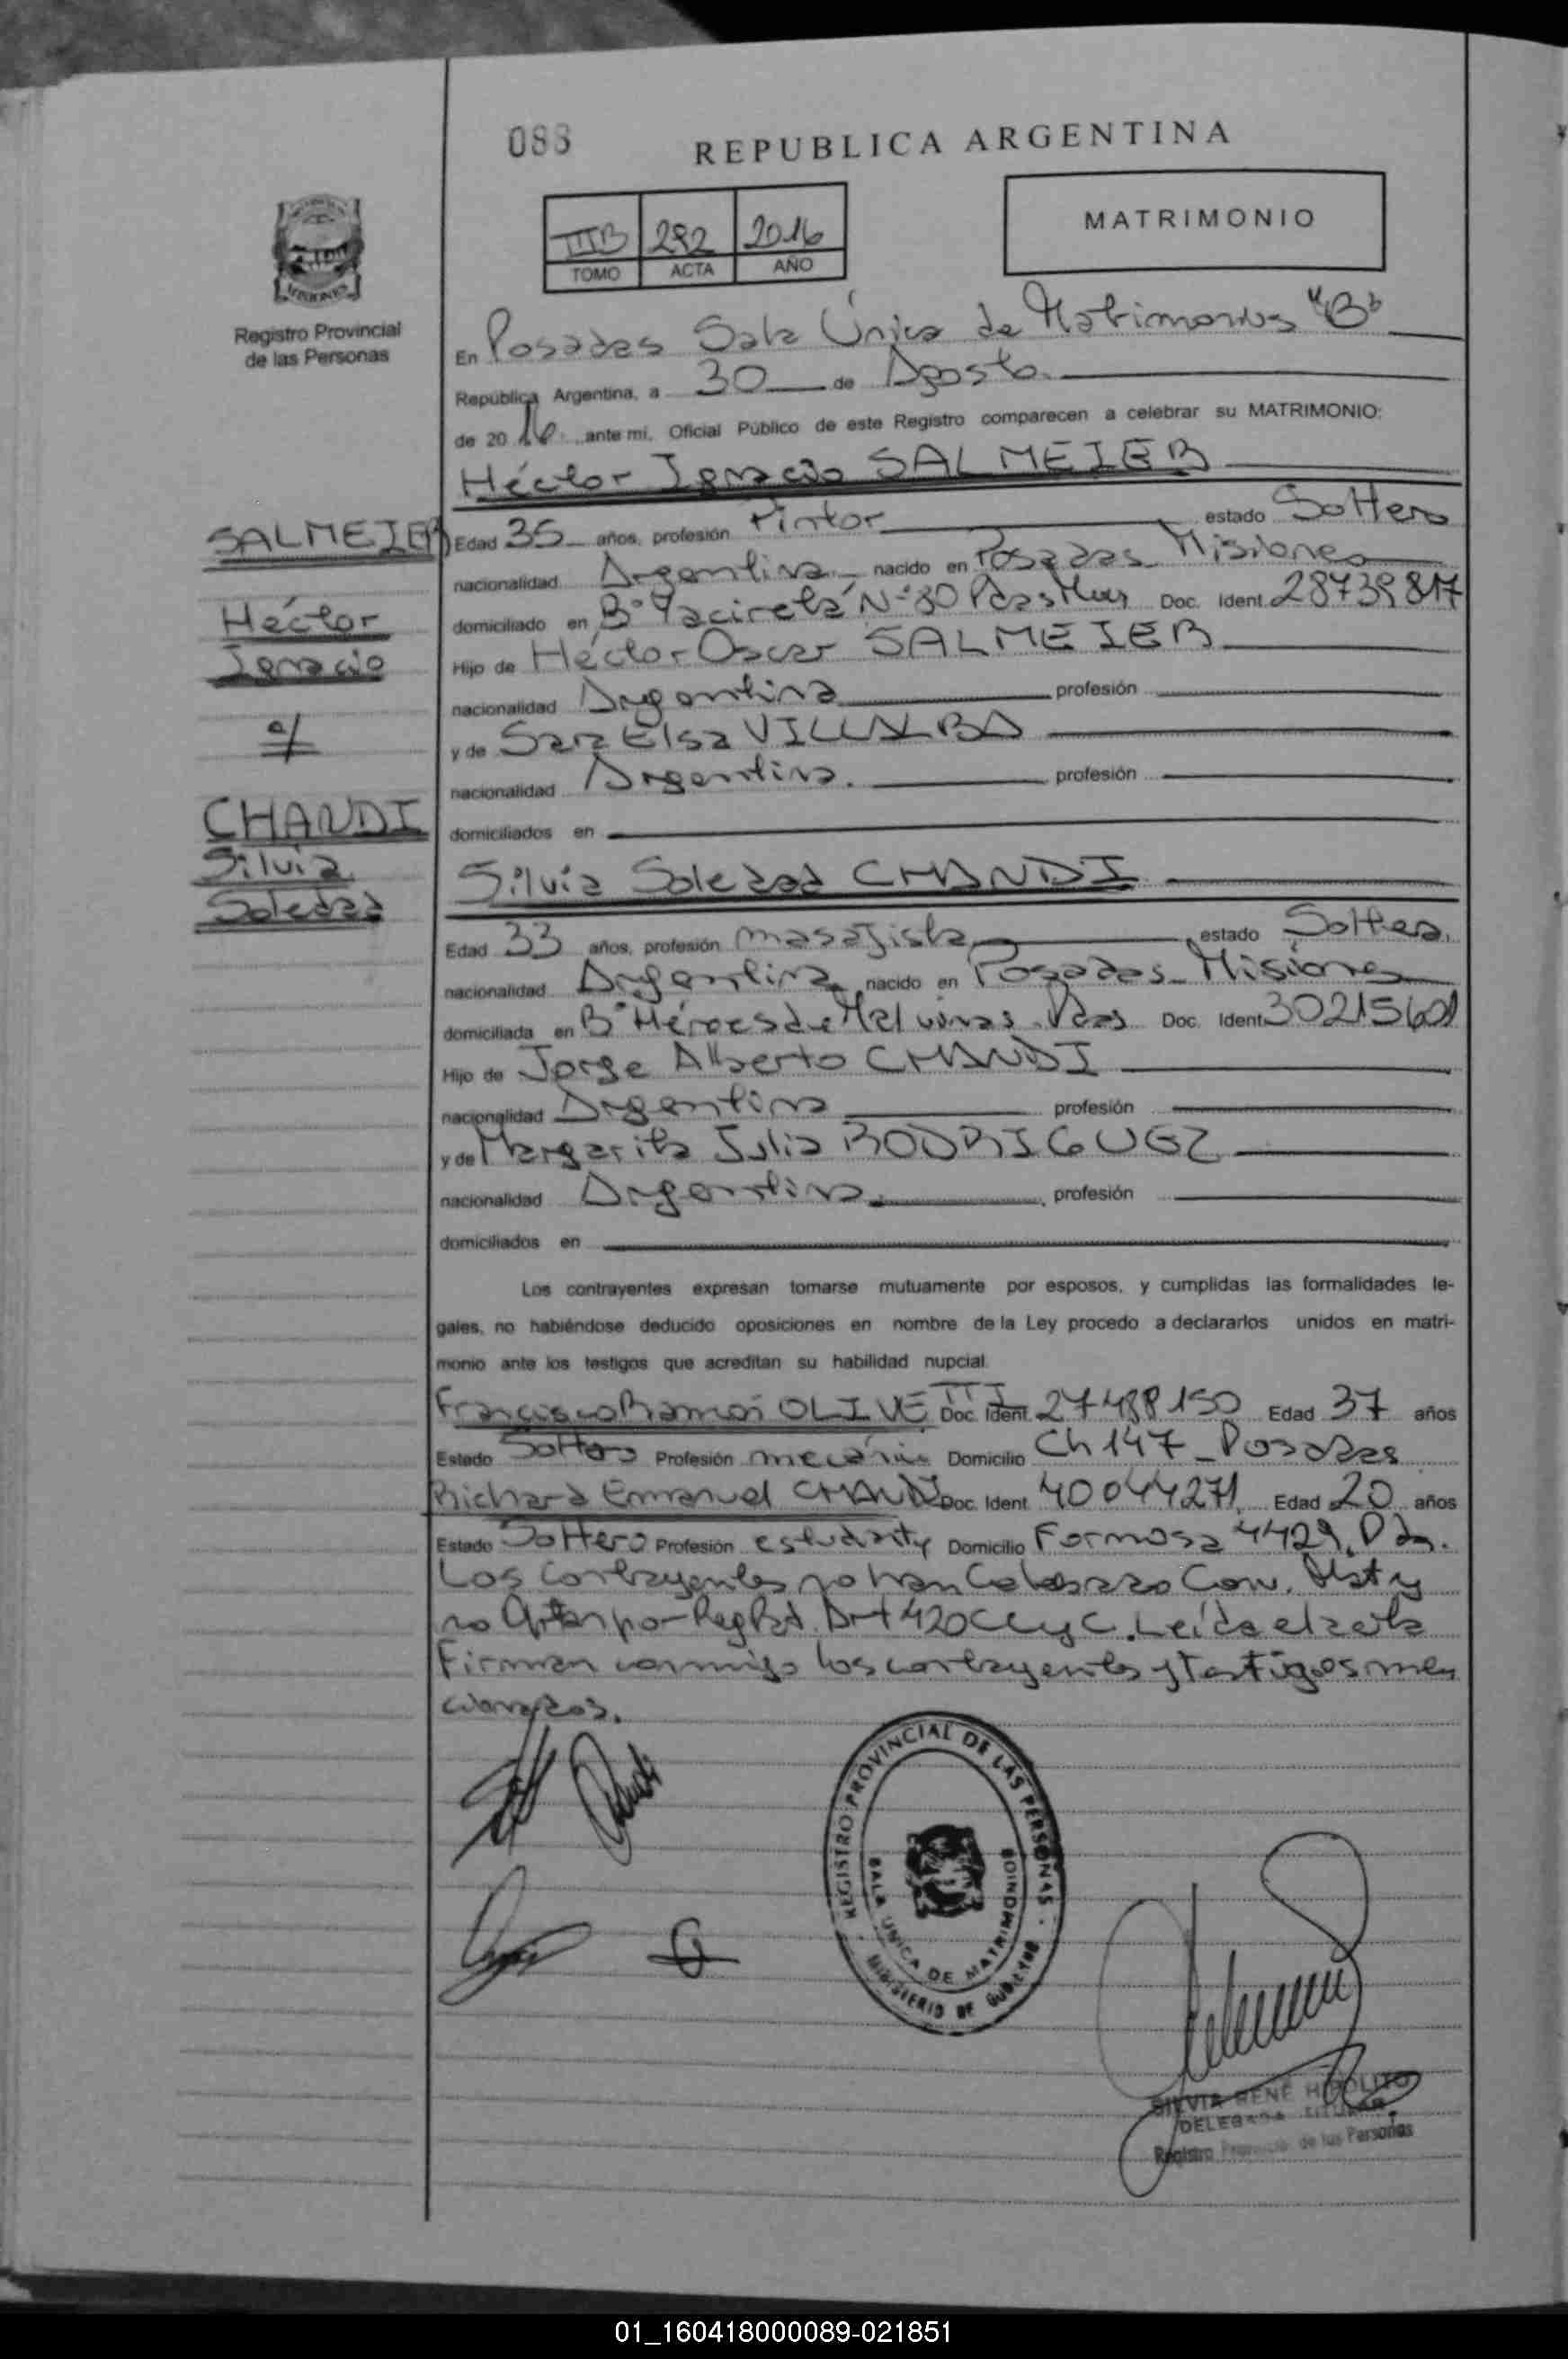 088
REPUBLICA ARGENTINA
MATRIMONIO
IIIB 292 2016
TOMO ACTA AÑO
MISIONES
Registro Provincial
de las Personas
En Posadas Sala Única de Matrimonios "B"
República Argentina, a 30 de Agosto
de 2016 ante mi, Oficial Público de este Registro comparecen a celebrar su MATRIMONIO:
Héctor Ignacio SALMEIER
SALMEIER
Héctor
Ignacio
c/
CHANDI
Silvia
Soledad
Edad 35 años, profesión Pintor estado Soltero
nacionalidad Argentina nacido en Posadas Misiones
domiciliado en B° Yacireta N° 80 Doc. Ident. 28739817
Hijo de Héctor Oscar SALMEIER
nacionalidad Argentina profesión
y de Sara Elsa VILLALBA
nacionalidad Argentina. profesión
domiciliados en
Silvia Soledad CHANDI
Edad 33 años, profesión masajista estado Soltera
nacionalidad Argentina nacido en Posadas Misiones
domiciliada en B° Héroes de Malvinas Pdas Doc. Ident 30215601
Hijo de Jorge Alberto CHANDI
nacionalidad Argentina profesión
y de Margarita Julia RODRIGUEZ
nacionalidad Argentina. profesión
domiciliados en
Los contrayentes expresan tomarse mutuamente por esposos, y cumplidas las formalidades le-
gales, no habiéndose deducido oposiciones en nombre de la Ley procedo a declararlos unidos en matri-
monio ante los testigos que acreditan su habilidad nupcial.
Francisco Ramón OLIVETTI Doc. Ident. 27488150 Edad 37 años
Estado Soltero Profesión mecánico Domicilio Ch 147 - Posadas
Richard Emanuel CHANDI Doc. Ident. 40044271 Edad 20 años
Estado Soltero Profesión estudiante Domicilio Formosa 4429. Pdas.
Los contrayentes no han Celebrado Conv. Mat y
no Optan por Reg Pat. Art 420 CCyC. Leída el acta
Firman conmigo los contrayentes y Testigos men
cionados.
REGISTRO PROVINCIAL DE LAS PERSONAS
SALA UNICA DE MATRIMONIOS
MINISTERIO DE GOBIERNO
SILVIA RENE HIPOLITO
DELEGADA TITULAR
Registro Provincial de las Personas
01_160418000089-021851